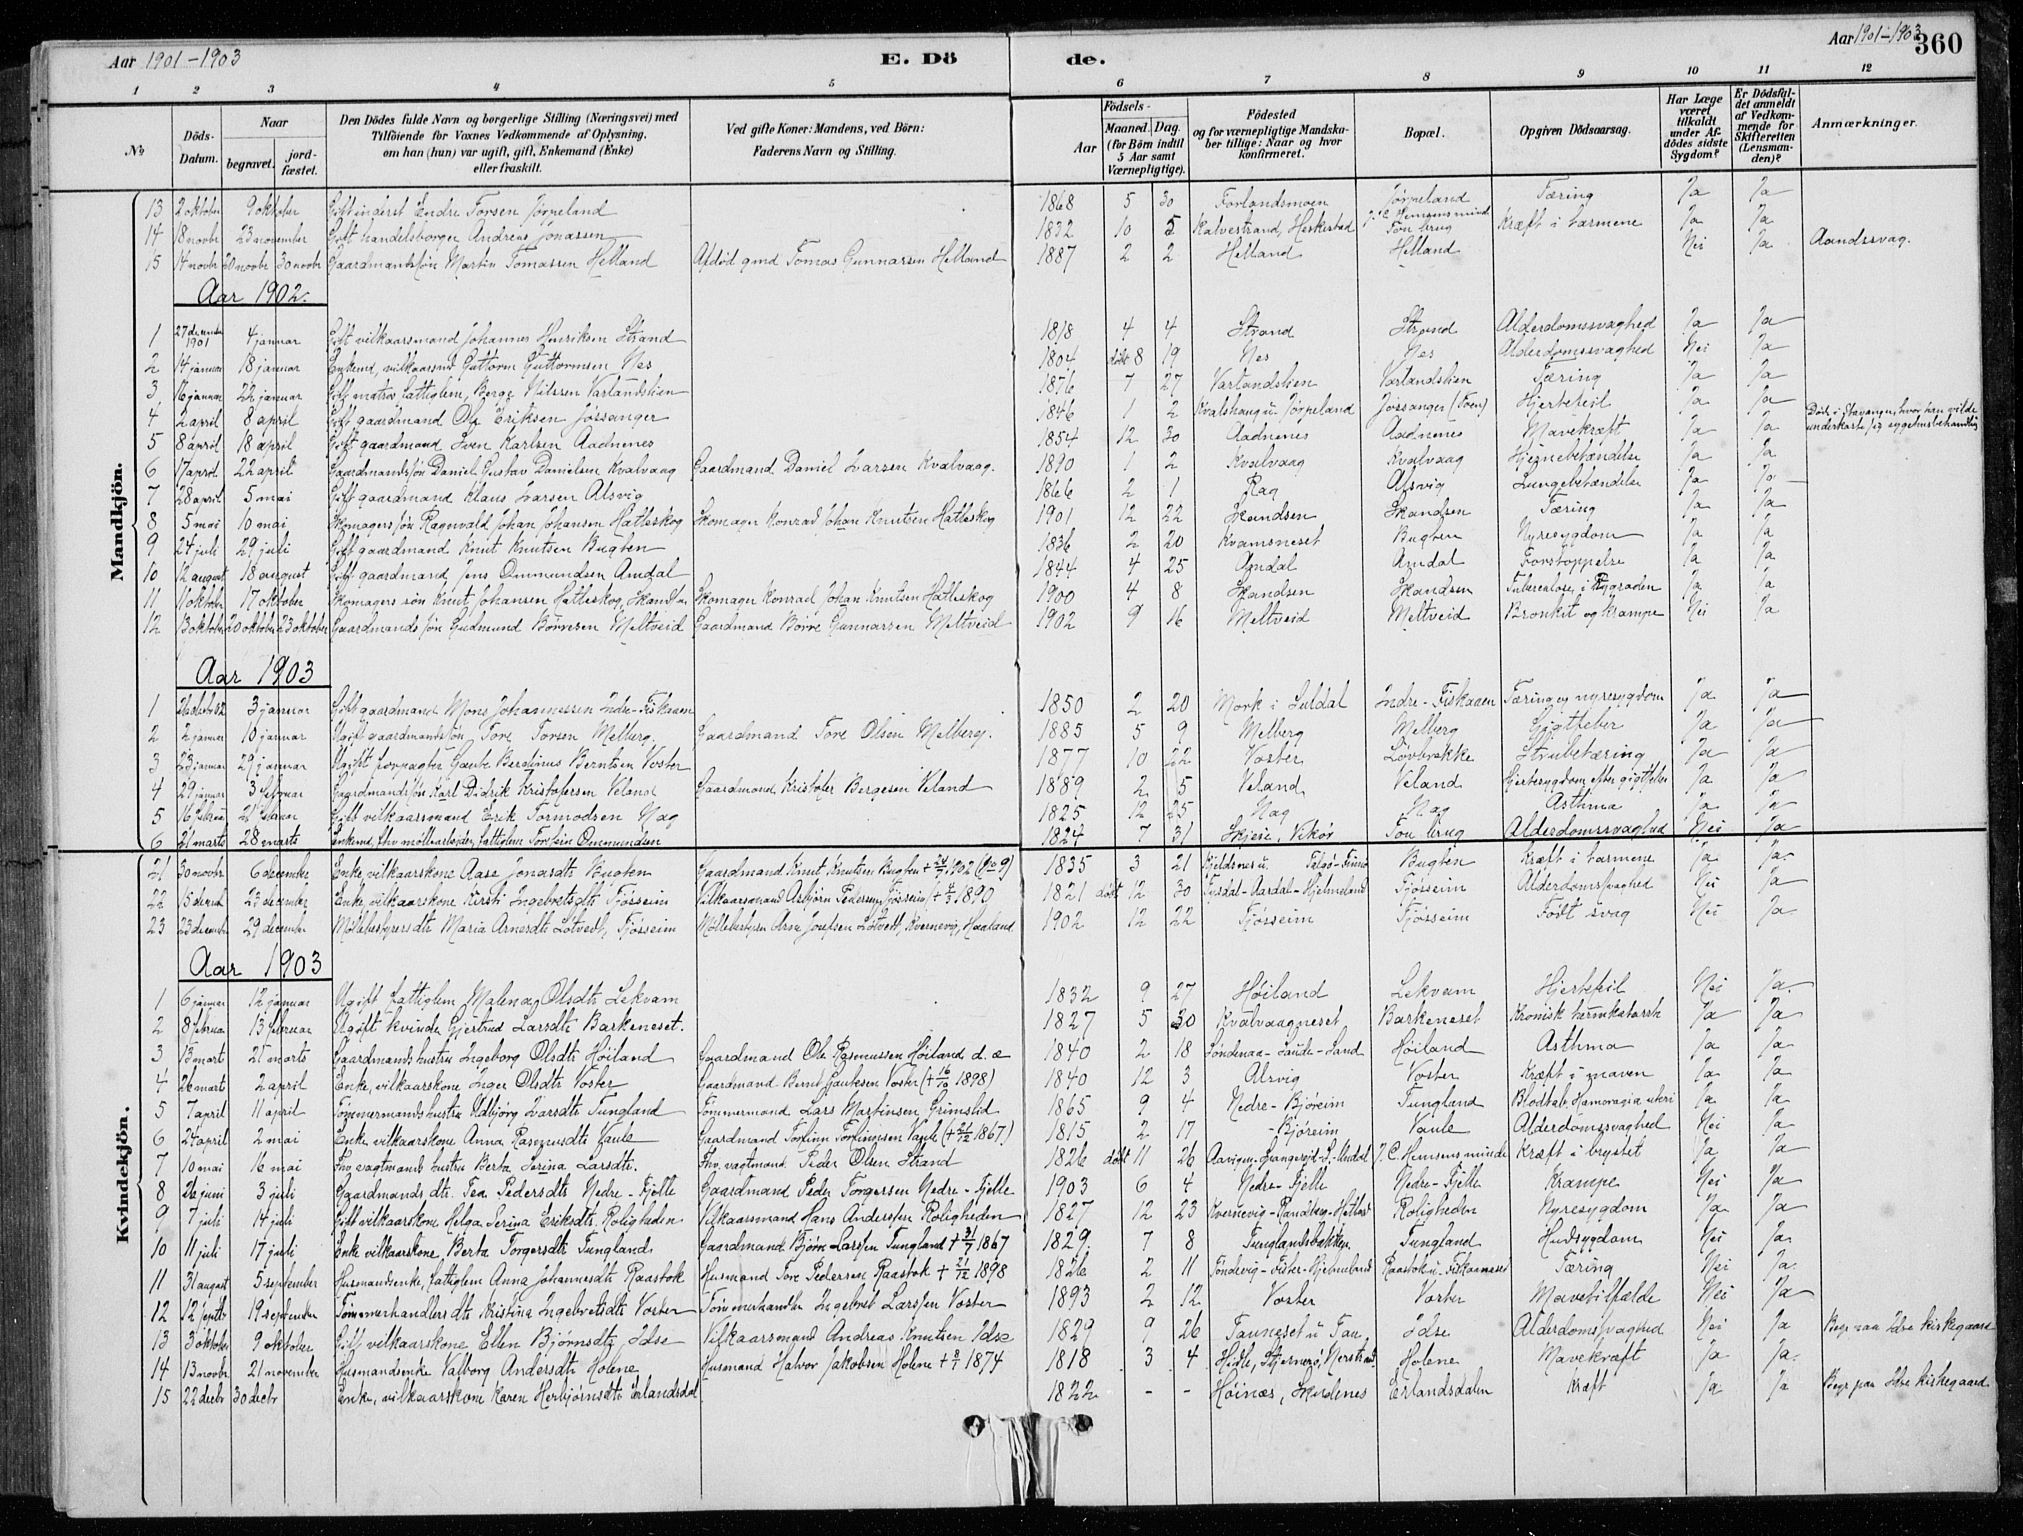 Aar 1901-1903 E. Dö de. Aar 1901-1903 360
1 2 3 4 5 6 7 8 9 10 11 12
No Döds-Datum. Naar begravet. jord-fæstet. Den Dödes fulde Navn og borgerlige Stilling (Næringsvei) med Tilföiende for Voxnes Vedkommende af Oplysning, om han (hun) var ugift, gift, Enkemand (Enke) eller fraskilt. Ved gifte Koner: Mandens, ved Börn: Faderens Navn og Stilling. Födsels- Aar Maaned. Dag. (for Börn indtil 5 Aar samt Værnepligtige). Födested og for værnepligtige Mandska-ber tillige: Naar og hvor konfirmeret. Bopæl. Opgiven Dödsaarsag. Har Læge været tilkaldt under Af-dödes sidste Sygdom? Er Dödsfal-det anmeldt af Vedkom-mende for Skifteretten (Lensman-den)? Anmærkninger.
Mandkjön.
13 2 oktober 9 oktober Gift inderst Endre Torsen Jørpeland 1868 5 30 Forlandsmoen Jørpeland Tæring Ja Ja
14 18 novbr 23 november Gift handelsborger Andreas Jonassen 1832 10 5 Kalvestrand, Heskestad Tou brug Kræft i tarmene Ja Ja
15 14 novbr 20 novbr 30 novbr Gaardmandssøn Martin Tomassen Helland Afdød gmd Tomas Gunnarsen Helland 1887 2 2 Helland Helland Nei Ja Aandssvag.
Aar 1902.
1 27 december 1901 4 januar Gift vilkaarsmand Johannes Henriksen Strand 1818 4 4 Strand Strand Alderdomssvaghed Ja Ja
2 14 januar 18 januar Enkemd, vilkaarsmd Guttorm Guttormsen Nes 1804 døbt 8 19 Nes Nes Alderdomssvaghed Nei Ja
3 16 januar 22 januar Gift matros, fattiglem, Berge Nilssen Vatlandslien 1876 7 27 Vatlandslien Vatlandslien Tæring Ja Ja
4 2 april 8 april Gift gaardmand Ole Eriksen Jøssanger 1846 1 2 Kvalshaug u. Jørpeland Jøssanger (Toen) Hjertefeil Ja Ja
5 8 april 18 april Gift gaardmand Sven Karlsen Aadnenes 1854 12 30 Aadnenes Aadnenes Mavekræft Ja Ja Døde i Stavanger, hvor han vilde underkaste sig sygehusbehandling
6 17 april 22 april Gaardmandssøn Daniel Gustav Danielsen Kvalvaag Gaardmand Daniel Larsen Kvalvaag. 1890 1 2 Kvalvaag Kvalvaag Hjernebetændelse Ja Ja
7 28 april 5 mai Gift gaardmand Klaus Larsen Alsvig 1866 2 1 Rag Alsvig Lungebetændelse Ja Ja
8 5 mai 10 mai Skomagersøn Ragnvald Johan Johansen Hatleskog Skomager Konrad Johan Knutsen Hatleskog 1901 12 22 Skandsen Skandsen Tæring Ja Ja
9 24 juli 29 juli Gift gaardmand Knut Knutsen Bugten 1836 2 20 Kvamsneset Bugten Nyresygdom Ja Ja
10 12 august 18 august Gift gaardmand Jens Ommundsen Amdal 1844 4 25 Amdal Amdal Forstoppelse Ja Ja
11 11 oktober 17 oktober Skomagers søn Knut Johansen Hatleskog, Skomager Konrad Johan Knutsen Hatleskog 1900 4 8 Skandsen Skandsen Tuberculose i Rygraden Ja Ja
12 13 oktober 20 oktober 23 oktober Gaardmandssøn Gudmund Børresen Meltveid Gaardmand Børre Gunnarsen Meltveid 1902 9 16 Meltveid Meltveid Bronkit og krampe Nei Ja
Aar 1903
1 3 januar Gift gaardmand Mons Johannessen Indre-Fiskaaen 1850 2 20 Mork i Suldal Indre-Fiskaaen Tæring og nyresygdom Ja Ja
2 2 januar 10 januar Ugift gaardmandssøn Tore Torsen Melberg. Gaardmand Tore Olsen Melberg. 1885 5 9 Melberg Melberg Gigtfeber Ja Ja
3 23 januar 29 januar Ugift forpagter Gaute Bertinus Berntsen Voster 1877 10 22 Voster Løvbrekke Strubetæring Ja Ja
4 29 januar 3 februar Gaardmandssøn Karl Didrik Kristofersen Veland Gaardmand Kristofer Bergesen Veland 1889 2 5 Veland Veland Hjertesygdom efter gigtfeber Ja Ja
5 16 februar 21 februar Gift vilkaarsmand Erik Tormodsen Nag 1825 12 25 Nag Nag Asthma Ja Ja
6 21 marts 28 marts Enkemd, fhv møllearbeider, fattiglem Torstein Ommundsen 1824 7 31 Vikør Tou brug Alderdomssvaghed Nei Ja
Kvindekjön.
21 30 novbr 6 december Enke, vilkaarskone Aase Jonasdtr Bugten Gaardmand Knut Knutsen Bugten + 24/7 1902 (No 9) 1835 3 21 Kjeldsnes u. Bugten Kræft i tarmene Ja Ja
22 15 decmb 23 december Enke, vilkaarskone Kersti Ingebretsdtr Tjøsseim Vilkaarsmand Asbjørn Pedersen Tjøsseim (+ 4/3 1890) 1821 døbt 12 30 Tysdal-Aardal-Hjelmeland Tjøsseim Alderdomssvaghed Nei Ja
23 23 decemb 29 december Møllebestyrersdtr Maria Arnesdtr Løtvedt, Tjøsseim Møllebestyrer Arne Josefsen Løtvedt, Kvernevig, Haaland 1902 12 22 Tjøsseim Tjøsseim Født svag Nei Ja
Aar 1903
1 6 januar 12 januar Ugift fattiglem Malena Olsdtr Lekvam 1832 9 27 Høiland Lekvam Hjertefeil Nei Ja
2 8 februar 13 februar Ugift kvinde Gjertrud Larsdtr Barkeneset. 1827 5 30 Kvalvaagneset Barkeneset Kronisk tarmkatarrh Ja Ja
3 13 mart 21 marts Gaardmands hustru Ingeborg Olsdtr Høiland Gaardmand Ole Rasmussen Høiland d. æ 1840 2 18 Søndenaa-Saude-Sand Høiland Asthma Ja Ja
4 26 mart 2 april Enke, vilkaarskone Inger Olsdtr Voster Gaardmand Bernt Gautesen Voster (+ 16/10 1898) 1840 12 3 Alsvig Voster Kræft i maven Ja Ja
5 7 april 11 april Tømmermands hustru Udbjørg Larsdtr Tungland Tømmermand Lars Martinsen Grimslid 1865 9 4 Nedre-Bjøreim Tungland Blodtab, Hæmoragia uteri Ja Ja
6 24 april 2 mai Enke, vilkaarskone Anna Rasmusdtr Vaule Gaardmand Torfinn Torfinnsen Vaule (+ 21/12 1867.) 1815 2 17 -Bjøreim Vaule Alderdomssvaghed Nei Ja
7 10 mai 16 mai Fhv. vagtmands hustru Berta Serina Larsdtr. Fhv. vagtmand Peder Olsen Strand 1826 døbt 11 26 J. C. Hemsens minde Kræft i brystet Ja Ja
8 26 juni 3 juli Gaardmands dtr. Tea Pedersdtr Nedre-Fjelle Gaardmand Peder Torgersen Nedre-Fjelle 1903 6 4 Nedre-Fjelle Nedre-Fjelle Krampe Nei Ja
9 7 juli 14 juli Gift vilkaarskone Helga Serina Eriksdtr. Roligheden Vilkaarsmand Hans Anderssen Roligheden 1827 12 23 Kvernevig-Randberg-Hetland Roligheden Nyresygdom Ja Ja
10 11 juli 17 juli Enke vilkaarskone Berta Torgersdtr Tungland Gaardmand Bjørn Larssen Tungland + 31/7 1867 1829 7 8 Tunglandsbakken Tungland Hudsygdom Nei Ja
11 31 august 5 september Husmandsenke, fattiglem Anna Johannesdtr Raastok Husmand Tore Pedersen Raastok + 21/12 1898 1826 2 11 Tøndevig-Fister-Hjelmeland Raastok u. Fiskaaneset Tæring Nei Ja
12 12 septb 19 september Tømmerhandlers dtr Kristina Ingebretsdtr Voster Tømmerhandler Ingebret Larssen Voster 1893 2 12 Voster Voster Mavetilfælde Nei Ja
13 3 oktober 9 oktober Gift vilkaarskone Ellen Bjørnsdtr Idse Vilkaarsmand Andreas Knutsen Idse 1829 9 26 Tauneset u Tau Idse Alderdomssvaghed Nei Ja Begr paa Idse kirkegaard
14 13 novbr 21 november Husmandsenke Valborg Andersdtr Holene Husmand Halvor Jakobsen Holene + 8/1 1874 1818 3 4 Hidle, Stjernerø, Nerstrand Holene Mavekræft Ja Ja
15 22 decbr 30 decbr Enke, vilkaarskone Karen Herbjørnsdtr Erlandsdal 1822 - - Høinæs, Skudenes Erlandsdalen Kræft Ja Ja Begr paa Idse kirkegaard